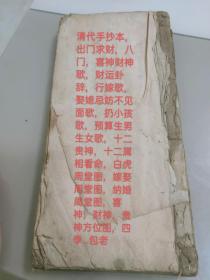 清代手抄本，
出门求财，八
门，喜神财神
歌，财运卦
辞，行嫁歌，
娶婚忌妨不见
面歌，扔小孩
歌，预算生男
生女歌，十二
贵神，十二属
相看命，白虎
周堂图，嫁娶
周堂图，纳婚
周堂图，喜
神，财神，贵
神方位图，四
季，包老